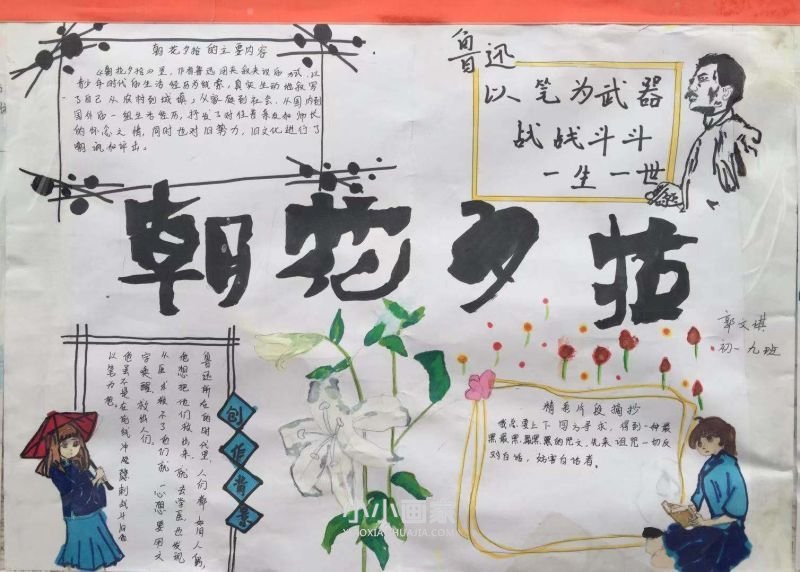 朝花夕拾的主要内容
青少年时代的生活经历为线索,真实生动地叙写
了自己从农村到城镇,从家庭到社会,从国内到
国外的一组生活经历,抒发了对往昔亲友和师长
的怀念之情,同时也对旧势力,旧文化进行了
嘲讽和评击。
鲁迅
以笔为武器
战战斗斗
一生一世
朝花夕拾
郭文琪
初一九班
创作背景
鲁迅所在的时代里,人们都如盲人
他想把他们救出来,就去学医,也发现
从医术救不了他们就一心想要用文
字唤醒,救出人们
以笔为枪。
精美片段摘抄
我总要上下四方寻求,得到一种最
黑最黑,最黑黑的咒文,先来诅咒一切反
对白话,妨害白话者。
小小画家
XIAOXIAOHUAJIA.COM